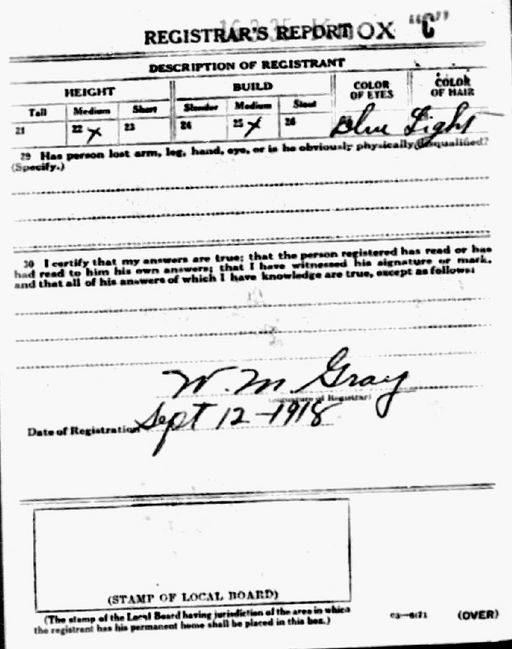 REGISTRAR'S REPORT KNOX "C"
DESCRIPTION OF REGISTRANT
HEIGHT BUILD COLOR OF EYES COLOR OF HAIR
Tall Medium Short Slender Medium Stout
21 22 x 23 24 25 x 26 Blue Light
29 Has person lost arm, leg, hand, eye, or is he obviously physically disqualified?
(Specify.)
30 I certify that my answers are true; that the person registered has read or has
had read to him his own answers; that I have witnessed his signature or mark,
and that all of his answers of which I have knowledge are true, except as follows:
W. M. Gray
(Signature of Registrar)
Date of Registration Sept 12-1918
(STAMP OF LOCAL BOARD)
(The stamp of the Local Board having jurisdiction of the area in which
the registrant has his permanent home shall be placed in this box.)
03—6171 (OVER)